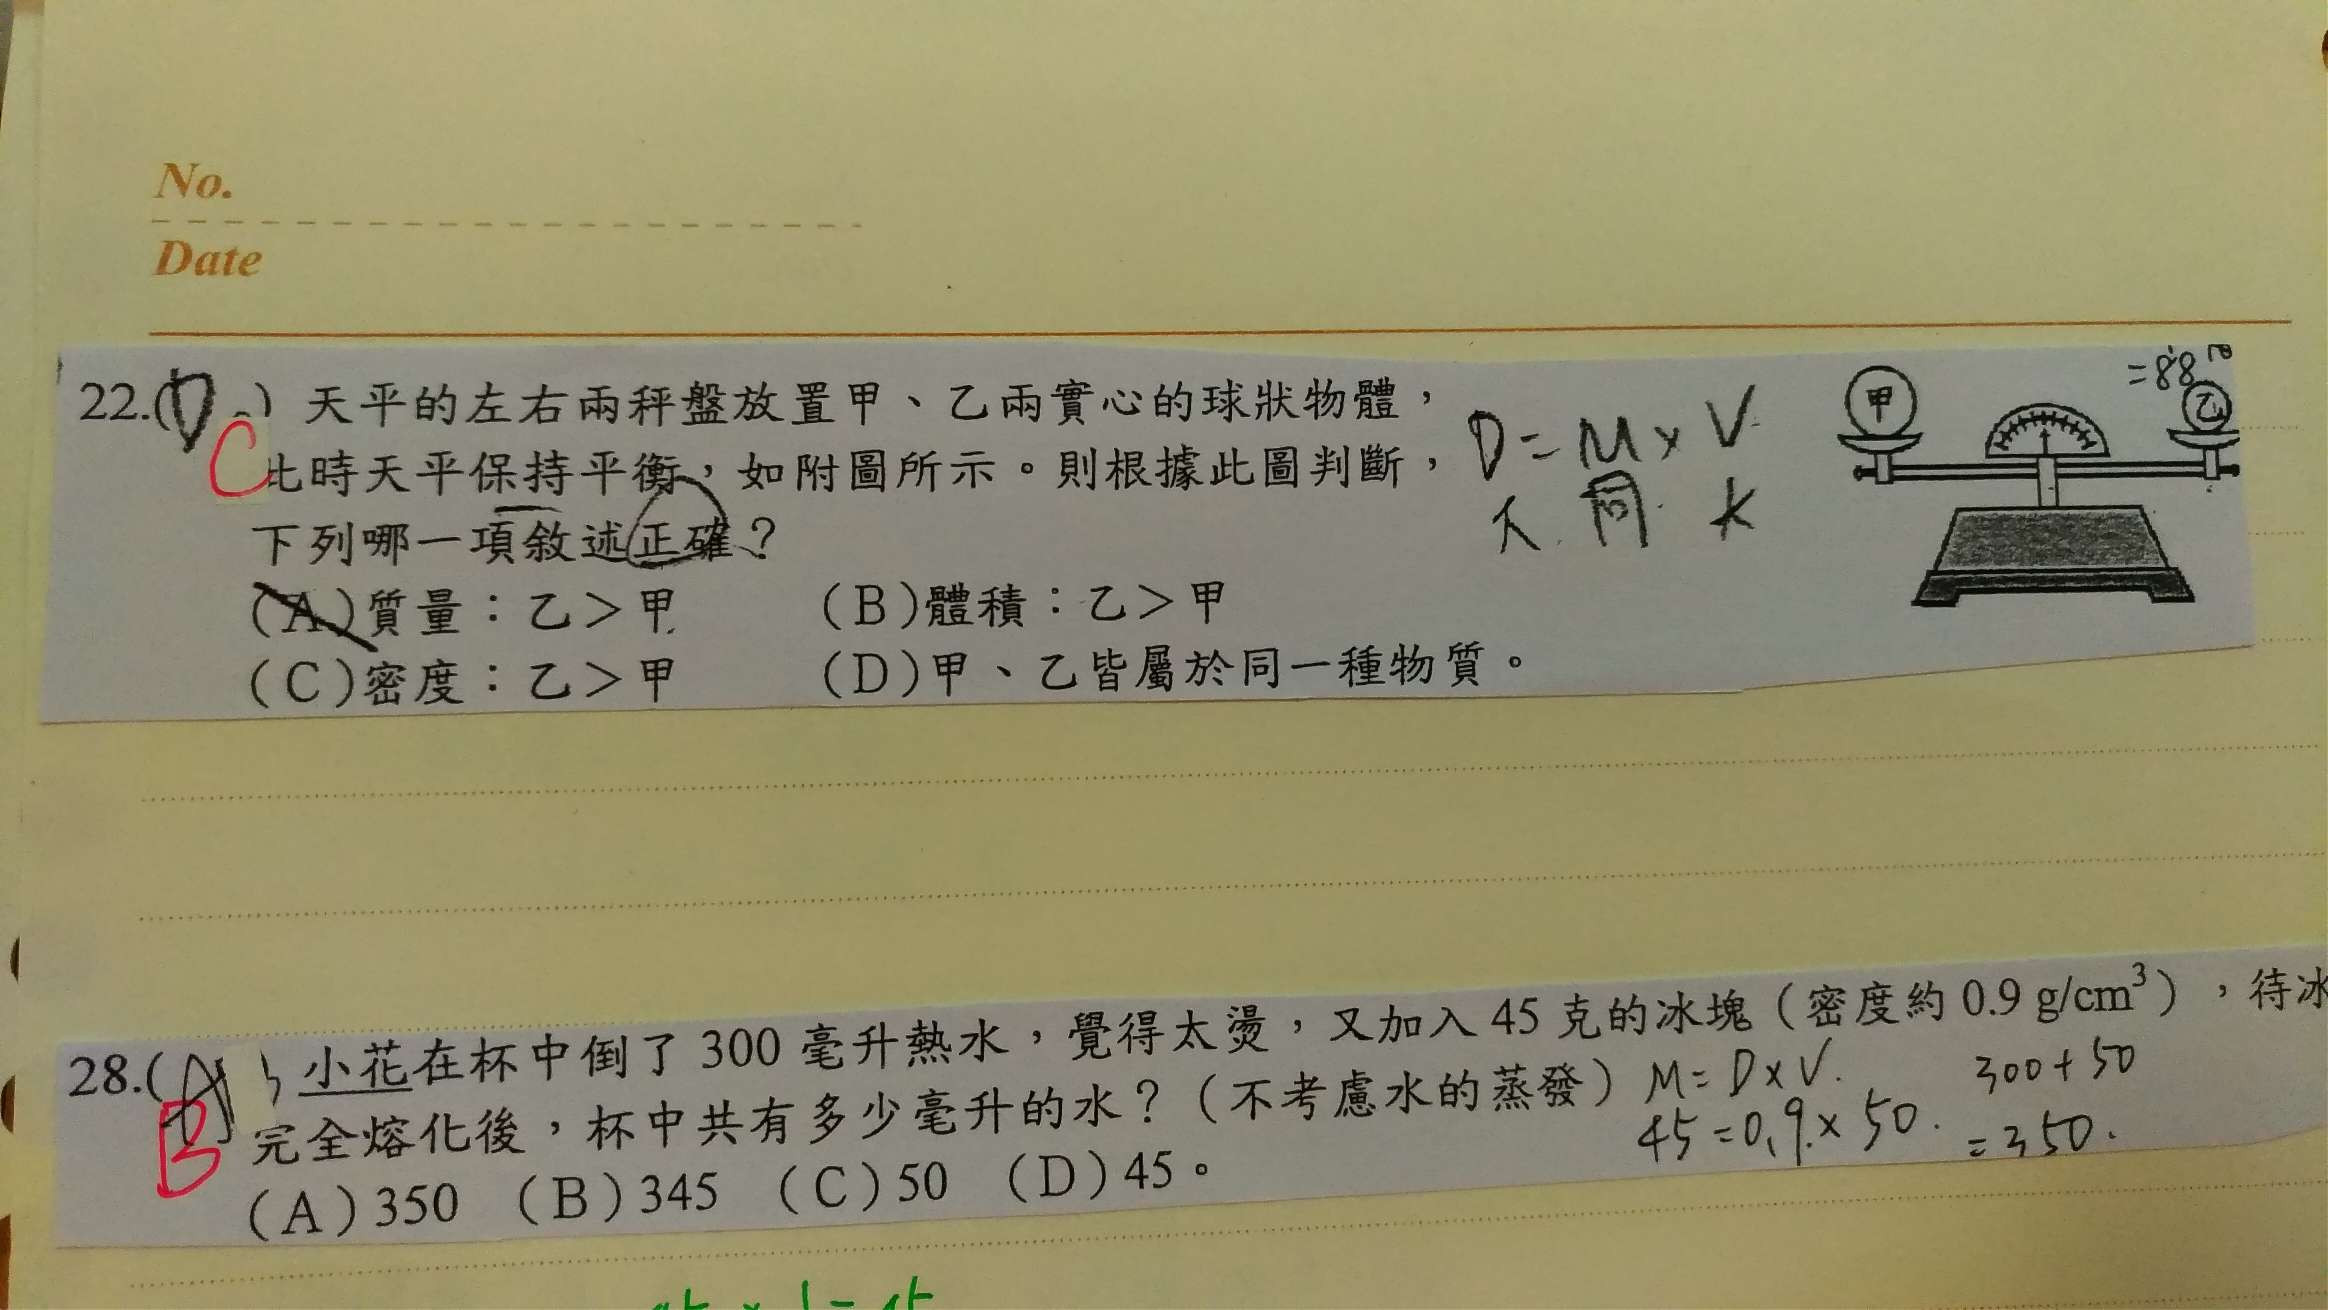 No.
Date
22.(D) 天平的左右兩秤盤放置甲、乙兩實心的球狀物體，
C
此時天平保持平衡，如附圖所示。則根據此圖判斷，
下列哪一項敘述正確？
(A)質量：乙＞甲 (B)體積：乙＞甲
(C)密度：乙＞甲 (D)甲、乙皆屬於同一種物質。
D=M×V
同
甲
乙
=88
28.(A) 小花在杯中倒了 300 毫升熱水，覺得太燙，又加入 45 克的冰塊（密度約 0.9 g/cm³），待冰
B
完全熔化後，杯中共有多少毫升的水？（不考慮水的蒸發）
(A)350 (B)345 (C)50 (D)45。
M=D×V.
45=0.9×50.
300+50
=350.